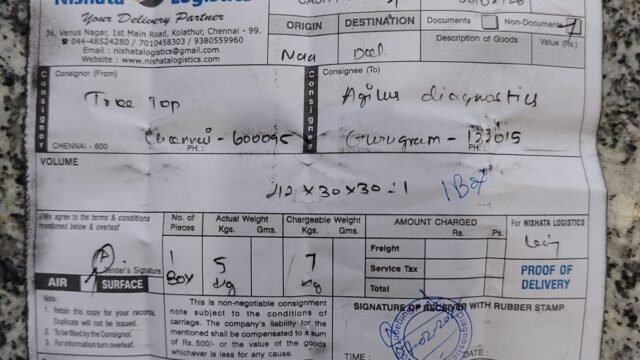 Nishata Logistics
Your Delivery Partner
36, Venus Nagar, 1st Main Road, Kolathur, Chennai - 99.
☎ 044-48524280 / 7010458303 / 9380559960
Email : nishatalogistics@gmail.com
Website : www.nishatalogistics.com
ORIGIN
DESTINATION
Documents
Non-Documents
Description of Goods
Value (Rs.)
Maa
Deel
Consignor
Consignor (From)
Tree Top
Chennai - 600095
CHENNAI - 600
PH. :
Consignee
Consignee (To)
Agilus diagnostics
Gurugram - 122015
PH. :
VOLUME
42 x 30 x 30 = 1
1 Box
I/We agree to the terms & conditions
mentioned below & overleaf
Sender's Signature
AIR
SURFACE
No. of
Pieces
1
BOX
Actual Weight
Kgs. Gms.
5
kg
Chargeable Weight
Kgs. Gms.
7
kg
AMOUNT CHARGED
Rs. Ps.
Freight
Service Tax
Total
For NISHATA LOGISTICS
PROOF OF
DELIVERY
Note :
1. Retain this copy for your records.
Duplicate will not be issued.
2. To be filled by the Consignor.
3. For information turn overleaf.
This is non-negotiable consignment
note subject to the conditions of
carriage. The company's liability for
the mentioned is limited to a sum
of Rs. 500/- or the value of the goods
whichever is less for any cause.
SIGNATURE OF RECEIVER WITH RUBBER STAMP
TIME :